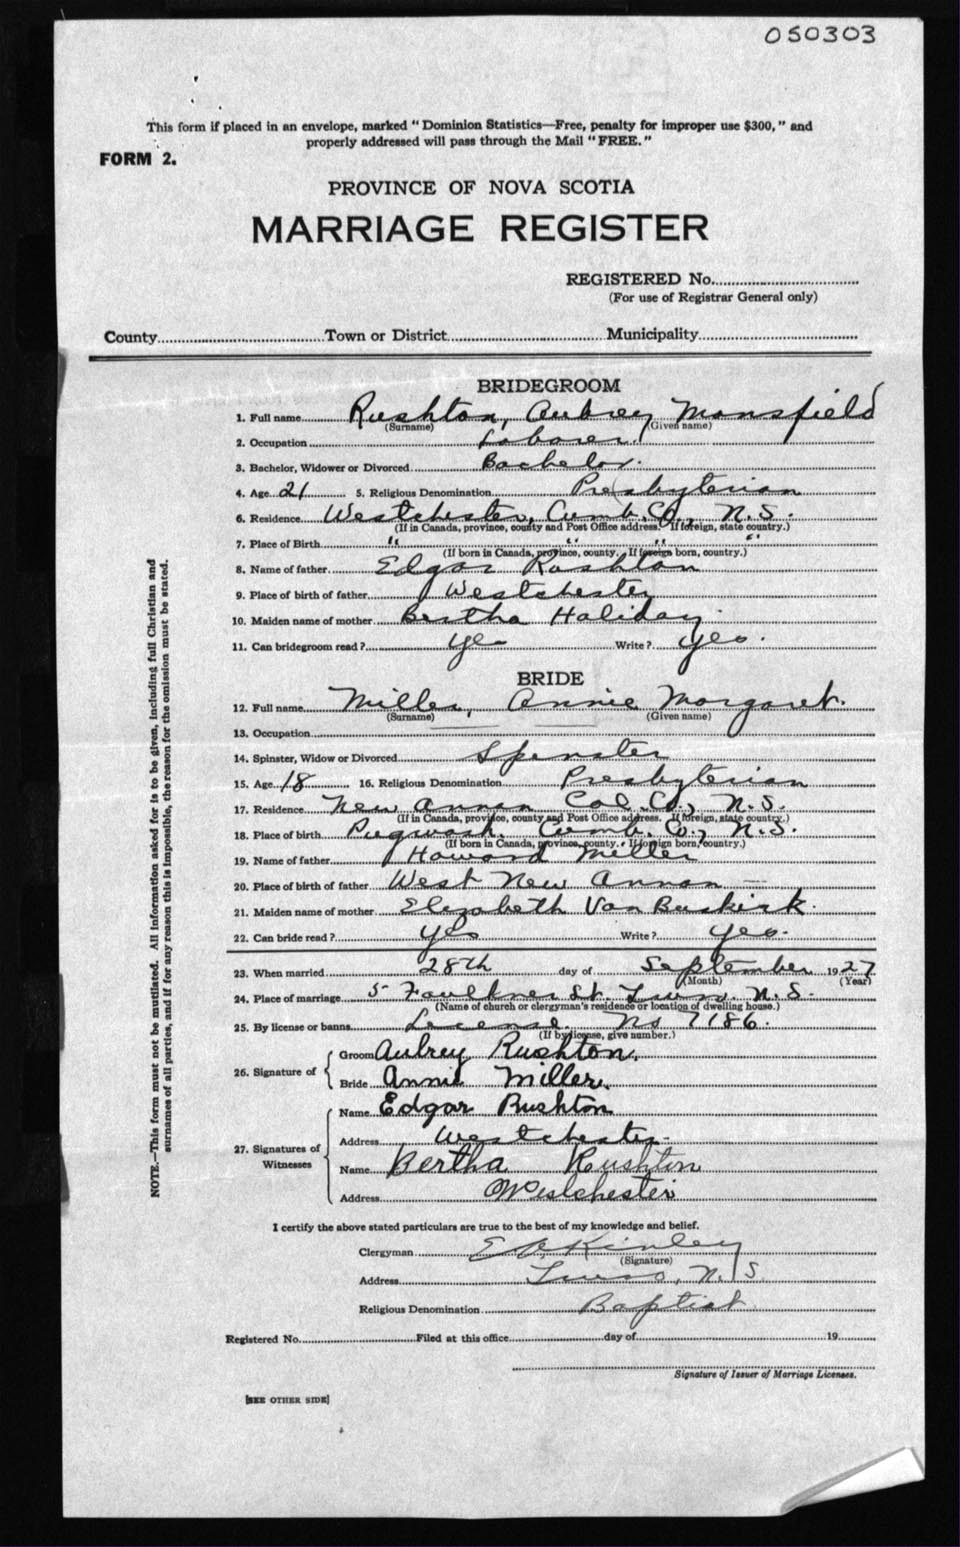 050303
This form if placed in an envelope, marked "Dominion Statistics—Free, penalty for improper use $300," and
properly addressed will pass through the Mail "FREE."
FORM 2.
PROVINCE OF NOVA SCOTIA
MARRIAGE REGISTER
REGISTERED No.
(For use of Registrar General only)
County Town or District Municipality
BRIDEGROOM
1. Full name Rushton, Aubrey Mansfield
(Surname) (Given name)
2. Occupation Laborer
3. Bachelor, Widower or Divorced Bachelor.
4. Age 21 5. Religious Denomination Presbyterian
6. Residence Westchester, Cumb. Co., N.S.
(If in Canada, province, county and Post Office address. If foreign, state country.)
7. Place of Birth " " "
(If born in Canada, province, county. If foreign born, country.)
8. Name of father Edgar Rushton
9. Place of birth of father Westchester
10. Maiden name of mother Bertha Haliday.
11. Can bridegroom read? yes Write? yes.
BRIDE
12. Full name Miller, Annie Margaret.
(Surname) (Given name)
13. Occupation
14. Spinster, Widow or Divorced Spinster
15. Age 18 16. Religious Denomination Presbyterian
17. Residence New Annan Col. Co., N.S.
(If in Canada, province, county and Post Office address. If foreign, state country.)
18. Place of birth Pugwash. Cumb. Co., N.S.
(If born in Canada, province, county. If foreign born, country.)
19. Name of father Howard Miller
20. Place of birth of father West New Annan
21. Maiden name of mother Elizabeth Van Buskirk.
22. Can bride read? yes Write? yes.
23. When married 28th day of September 1927
(Month) (Year)
24. Place of marriage 5 Faulkner St. Truro. N.S.
(Name of church or clergyman's residence or location of dwelling house.)
25. By license or banns License. No 7186.
(If by license, give number.)
26. Signature of
Groom Aubrey Rushton.
Bride Annie Miller.
27. Signatures of Witnesses
Name Edgar Rushton
Address Westchester
Name Bertha Rushton
Address Westchester
I certify the above stated particulars are true to the best of my knowledge and belief.
Clergyman Kinley
(Signature)
Address Truro, N.S.
Religious Denomination Baptist
Registered No. Filed at this office day of 19
Signature of Issuer of Marriage Licenses.
[SEE OTHER SIDE]
NOTE.—This form must not be mutilated. All information asked for is to be given, including full Christian and
surnames of all parties, and if for any reason this is impossible, the reason for the omission must be stated.